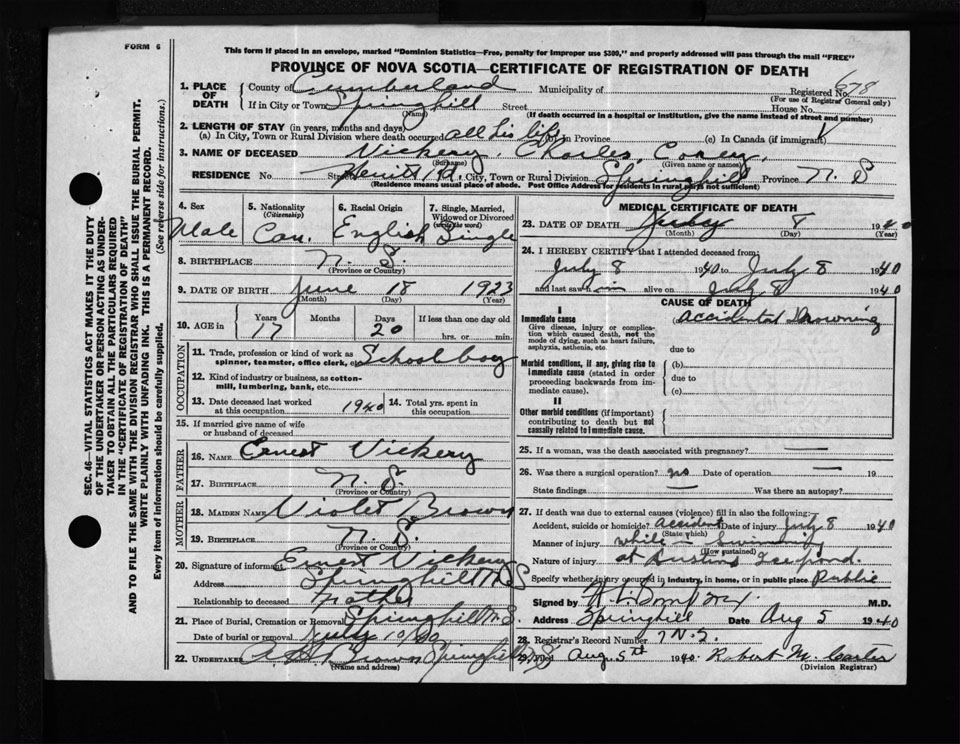 FORM 6
This form if placed in an envelope, marked "Dominion Statistics—Free, penalty for improper use $300," and properly addressed will pass through the mail "FREE"
PROVINCE OF NOVA SCOTIA—CERTIFICATE OF REGISTRATION OF DEATH
678
1. PLACE OF DEATH
County of Cumberland Municipality of Registered No.
(For use of Registrar General only)
If in City or Town Springhill Street House No.
(Name) (If death occurred in a hospital or institution, give the name instead of street and number)
2. LENGTH OF STAY (in years, months and days)
(a) In City, Town or Rural Division where death occurred all his life (b) In Province (c) In Canada (if immigrant)
3. NAME OF DECEASED Vickery, Charles, Corey,
(Surname) (Given name or names)
RESIDENCE No. Street City, Town or Rural Division Springhill Province N. S
(Residence means usual place of abode. Post Office Address for residents in rural parts not sufficient)
4. Sex Male
5. Nationality (Citizenship) Can.
6. Racial Origin English
7. Single, Married, Widowed or Divorced (write the word) Single
8. BIRTHPLACE N. S.
(Province or Country)
9. DATE OF BIRTH June 18 1923
(Month) (Day) (Year)
10. AGE in Years Months Days If less than one day old
17 20 hrs. or min.
OCCUPATION
11. Trade, profession or kind of work as spinner, teamster, office clerk, etc. School boy
12. Kind of industry or business, as cotton-mill, lumbering, bank, etc.
13. Date deceased last worked at this occupation 1940 14. Total yrs. spent in this occupation
15. If married give name of wife or husband of deceased
FATHER
16. NAME Ernest Vickery
17. BIRTHPLACE N. S.
(Province or Country)
MOTHER
18. MAIDEN NAME Violet Brown
19. BIRTHPLACE N. S.
(Province or Country)
20. Signature of informant Ernest Vickery
Address Springhill N S
Relationship to deceased Father
21. Place of Burial, Cremation or Removal Springhill N.S.
Date of burial or removal July 10/40
22. UNDERTAKER Brown Springhill N S
(Name and address)
MEDICAL CERTIFICATE OF DEATH
23. DATE OF DEATH July 8 1940
(Month) (Day) (Year)
24. I HEREBY CERTIFY that I attended deceased from:
July 8 1940 to July 8 1940
and last saw him alive on July 8 1940
CAUSE OF DEATH
Immediate cause
Give disease, injury or complication which caused death, not the mode of dying, such as heart failure, asphyxia, asthenia, etc.
(a) Accidental Drowning
due to
Morbid conditions, if any, giving rise to immediate cause (stated in order proceeding backwards from immediate cause).
(b)
due to
(c)
II
Other morbid conditions (if important) contributing to death but not causally related to immediate cause.
25. If a woman, was the death associated with pregnancy? —
26. Was there a surgical operation? no Date of operation — 19
State findings — Was there an autopsy?
27. If death was due to external causes (violence) fill in also the following:
Accident, suicide or homicide? accident Date of injury July 8 1940
(State which)
Manner of injury while Swimming
(How sustained)
Nature of injury at Ice pond
Specify whether injury occurred in industry, in home, or in public place Public
Signed by M.D.
Address Springhill Date Aug 5 1940
28. Registrar's Record Number
29. Filed Aug. 5th 1940. Robert M. Carter
(Division Registrar)
SEC. 46—VITAL STATISTICS ACT MAKES IT THE DUTY
OF THE UNDERTAKER OR PERSON ACTING AS UNDER-
TAKER TO OBTAIN ALL THE PARTICULARS REQUIRED
IN THE "CERTIFICATE OF REGISTRATION OF DEATH"
AND TO FILE THE SAME WITH THE DIVISION REGISTRAR WHO SHALL ISSUE THE BURIAL PERMIT.
WRITE PLAINLY WITH UNFADING INK. THIS IS A PERMANENT RECORD.
Every item of information should be carefully supplied. (See reverse side for instructions.)